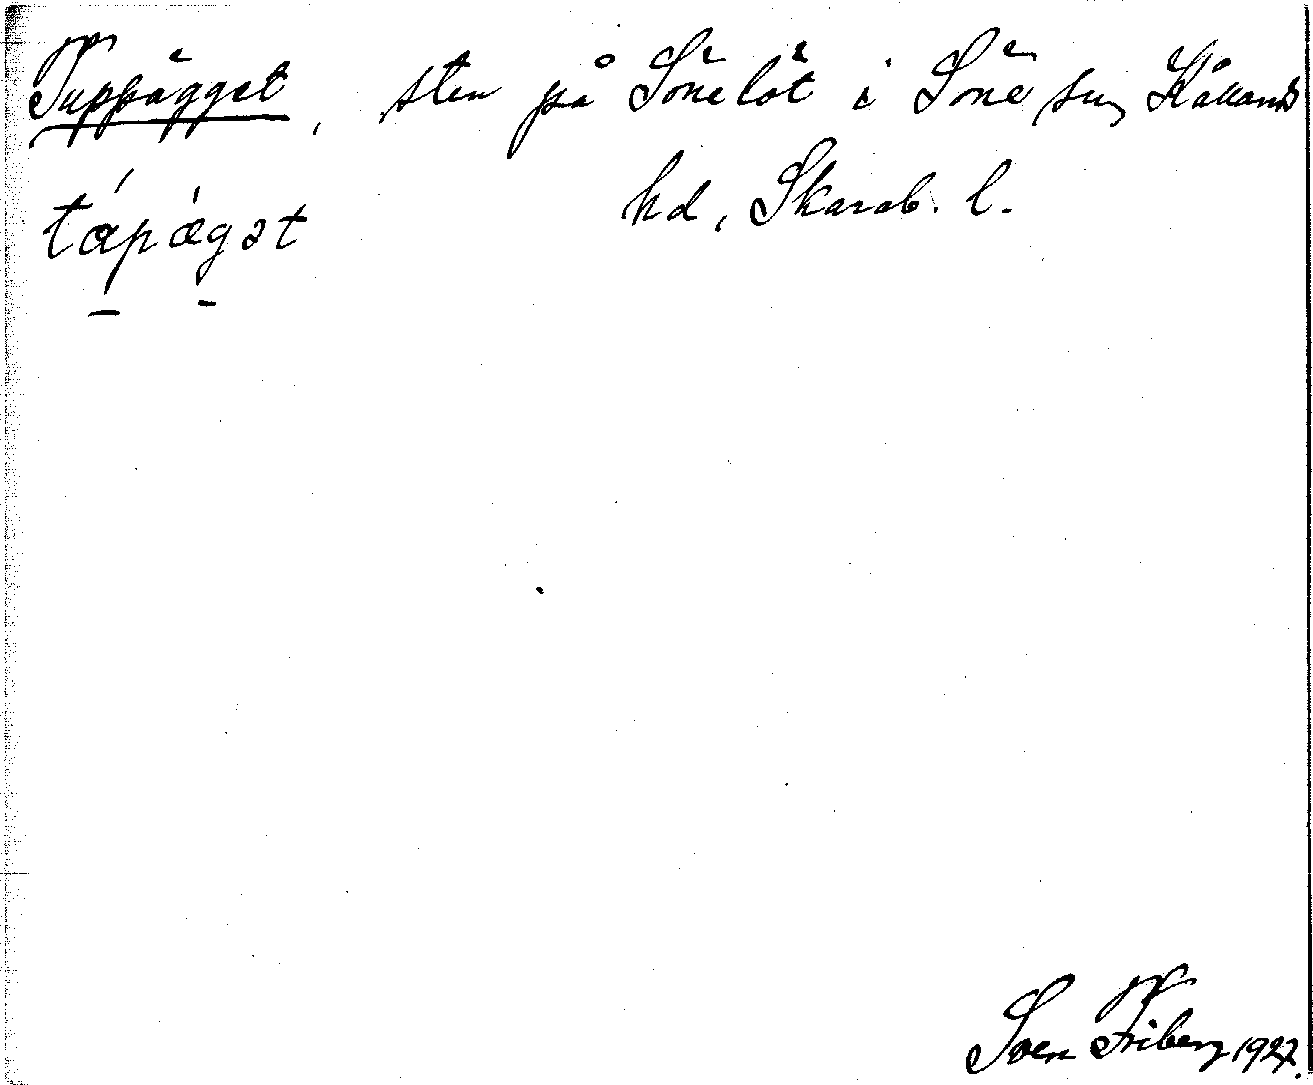 Tuppägget, sten på Sönelöt i Söne sn, Kållands
tápǽgət
hd, Skarab. l.
Sven Friberg 1927.